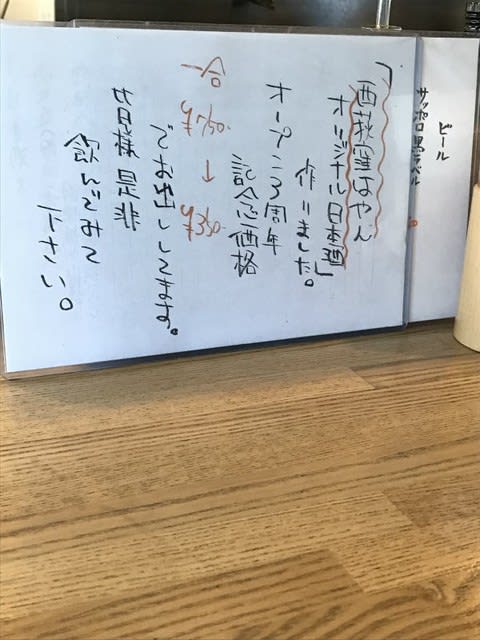 ビール
サッポロ黒ラベル
「西荻窪はやん
オリジナル日本酒」
作りました。
オープン3周年
記念価格
一合
→
でお出ししてます。
皆様 是非
飲んでみて
下さい。